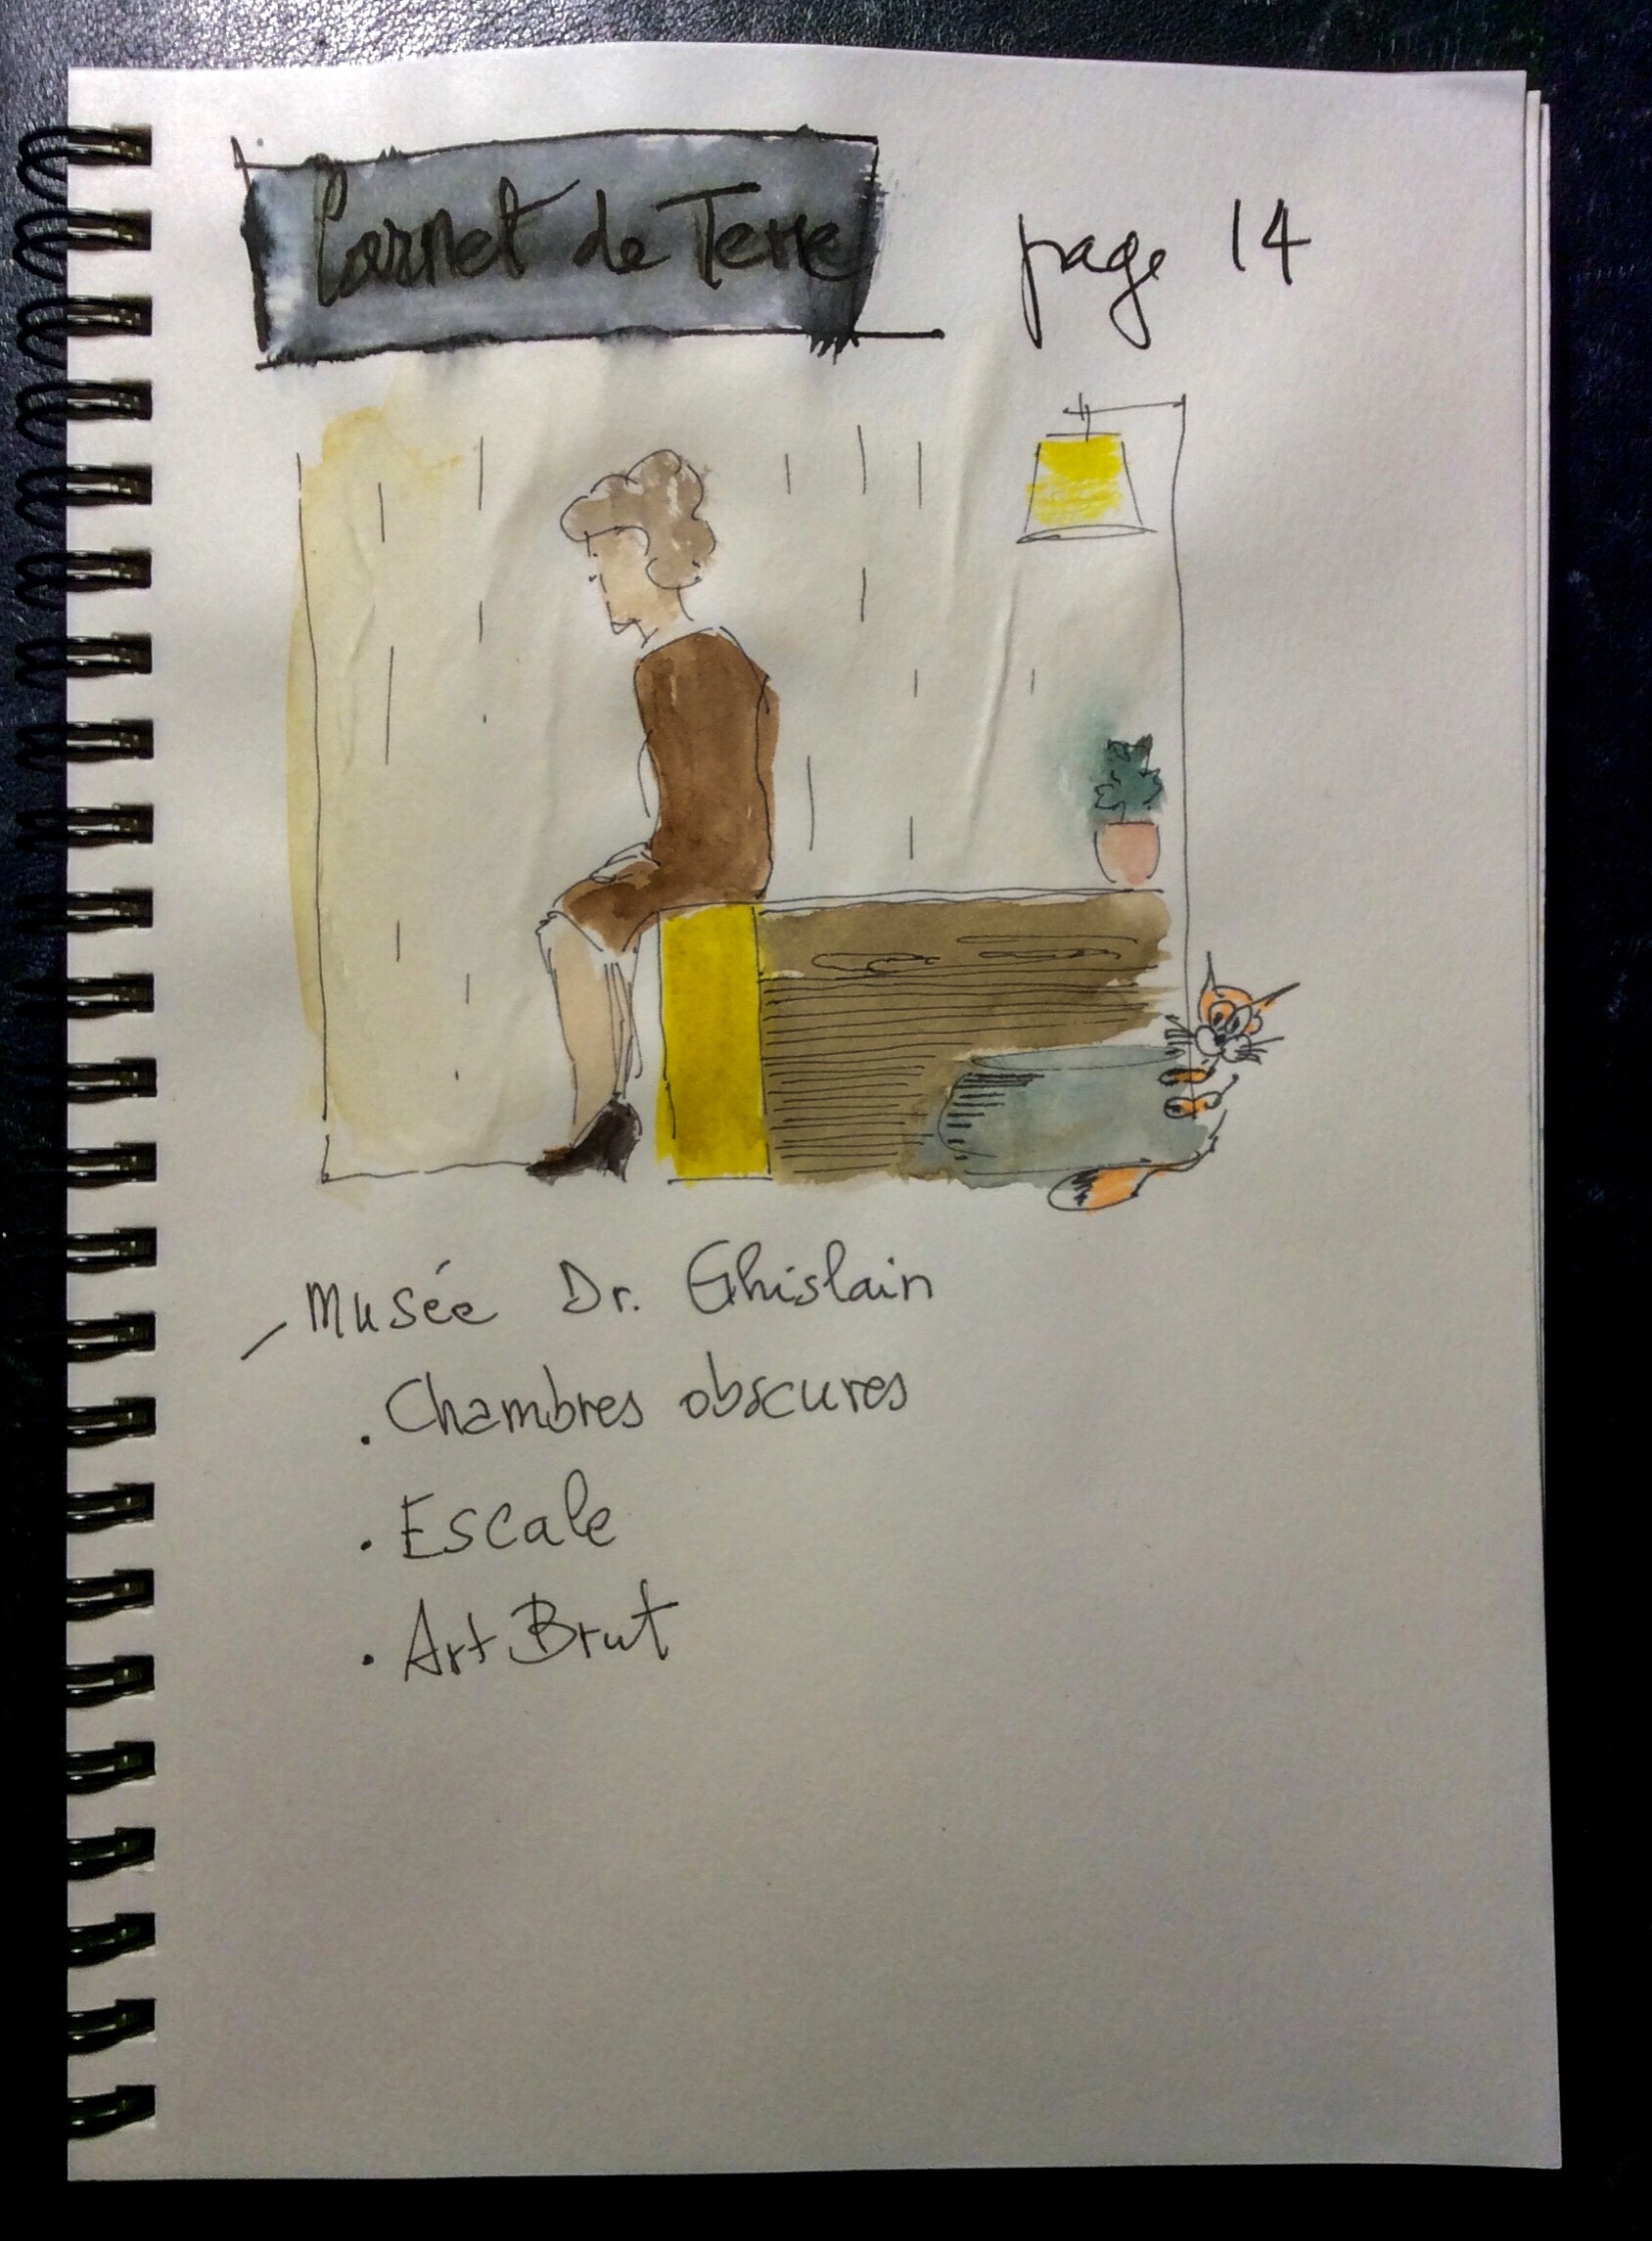 Carnet de Terre page 14
Musée Dr. Ghislain
. Chambres obscures
. Escale
. Art Brut